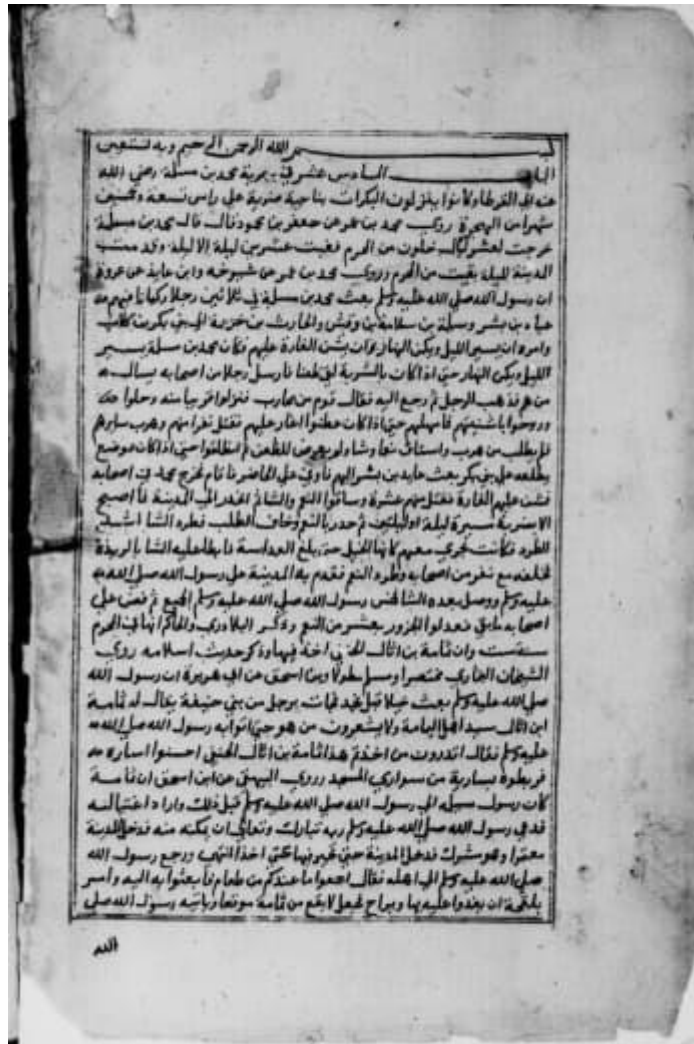 بسم الله الرحمن الرحيم وبه نستعين
الباب السادس عشر في سرية محمد بن مسلمة رضي الله
عنه الى القرطا وكانوا ينزلون البكرات بناحية ضرية على راس تسعة وخمسين
شهرا من الهجرة روى محمد بن عمر عن جعفر بن محمود قال قال محمد بن مسلمة
خرجت لعشر ليال خلون من المحرم فغبت عشرين ليلة الا ليلة وقدمت
المدينة لليلة بقيت من المحرم وروى محمد بن عمر عن شيوخه وابن عايذ عن عروة
ان رسول الله صلى الله عليه وسلم بعث محمد بن مسلمة في ثلاثين رجلا ركبانا فيهم
عباد بن بشر وسلمة بن سلامة بن وقش والحارث بن خزمة الى بني بكر بن كلاب
وامره ان يسير الليل ويكمن النهار وان يشن الغارة عليهم فكان محمد بن مسلمة يسير
الليل ويكمن النهار حتى اذا كان بالشربة لقي ظعنا فارسل رجلا من اصحابه يسال
من هم فذهب الرجل ثم رجع اليه فقال قوم من محارب فنزلوا قريبا منه وحلوا
وروحوا ماشيتهم فامهلهم حتى اذا كان عطنوا اغار عليهم فقتل نفرا منهم وهرب سايرهم
فلم يطلب من هرب واستاق نعما وشاء ولم يعرض للظعن ثم انطلقوا حتى اذا كان بموضع
يطلعه على بني بكر بعث عابد بن بشر اليهم فاوفى على الحاضر فاقام فخرج محمد في اصحابه
فشن عليهم الغارة فقتل منهم عشرة وساقوا النعم والشاء ثم انحدر الى المدينة فما اصبح
الا ضرية مسيرة ليلة او ليلتين ثم حدر بالنعم وخاف الطلب فطرد الشاء اشد
الطرد فكانت تجري معهم كانها الخيل حتى بلغ العداسة فابطا عليه الشاء بالربذة
فخلفه مع نفر من اصحابه وطرد النعم فقدم به المدينة على رسول الله صلى الله
عليه وسلم ووصل بعده الشاء فخمس رسول الله صلى الله عليه وسلم الجميع ثم فض على
اصحابه ما بقي فعدلوا الجزور بعشر من الغنم وذكر البلاذري والحاكم انها في المحرم
سنة ست وان ثمامة بن اثال الحنفي اخذ فيها وذكر حديث اسلامه روى
الشيخان البخاري مختصرا ومسلم مطولا وابن اسحق عن ابي هريرة ان رسول الله
صلى الله عليه وسلم بعث خيلا قبل نجد فجات برجل من بني حنيفة يقال له ثمامة
ابن اثال سيد اهل اليمامة ولا يشعرون من هو حتى اتوا به رسول الله صلى الله
عليه وسلم فقال اتدرون من اخذتم هذا ثمامة بن اثال الحنفي احسنوا اساره
فربطوه بسارية من سواري المسجد وروى البيهقي عن ابن اسحق ان ثمامة
كان رسول مسيلمة الى رسول الله صلى الله عليه وسلم قبل ذلك واراد اغتياله
فدعى رسول الله صلى الله عليه وسلم ربه تبارك وتعالى ان يمكنه منه فدخل المدينة
معتمرا وهو مشرك فدخل المدينة حتى تحير فيها حتى اخذ انتهى ورجع رسول الله
صلى الله عليه وسلم الى اهله فقال اجمعوا ما عندكم من طعام فابعثوا به اليه وامر
بلقحة ان يغدوا عليه بها ويراح فجعل لا يقع من ثمامة موقعا وياتيه رسول الله صلى
الله